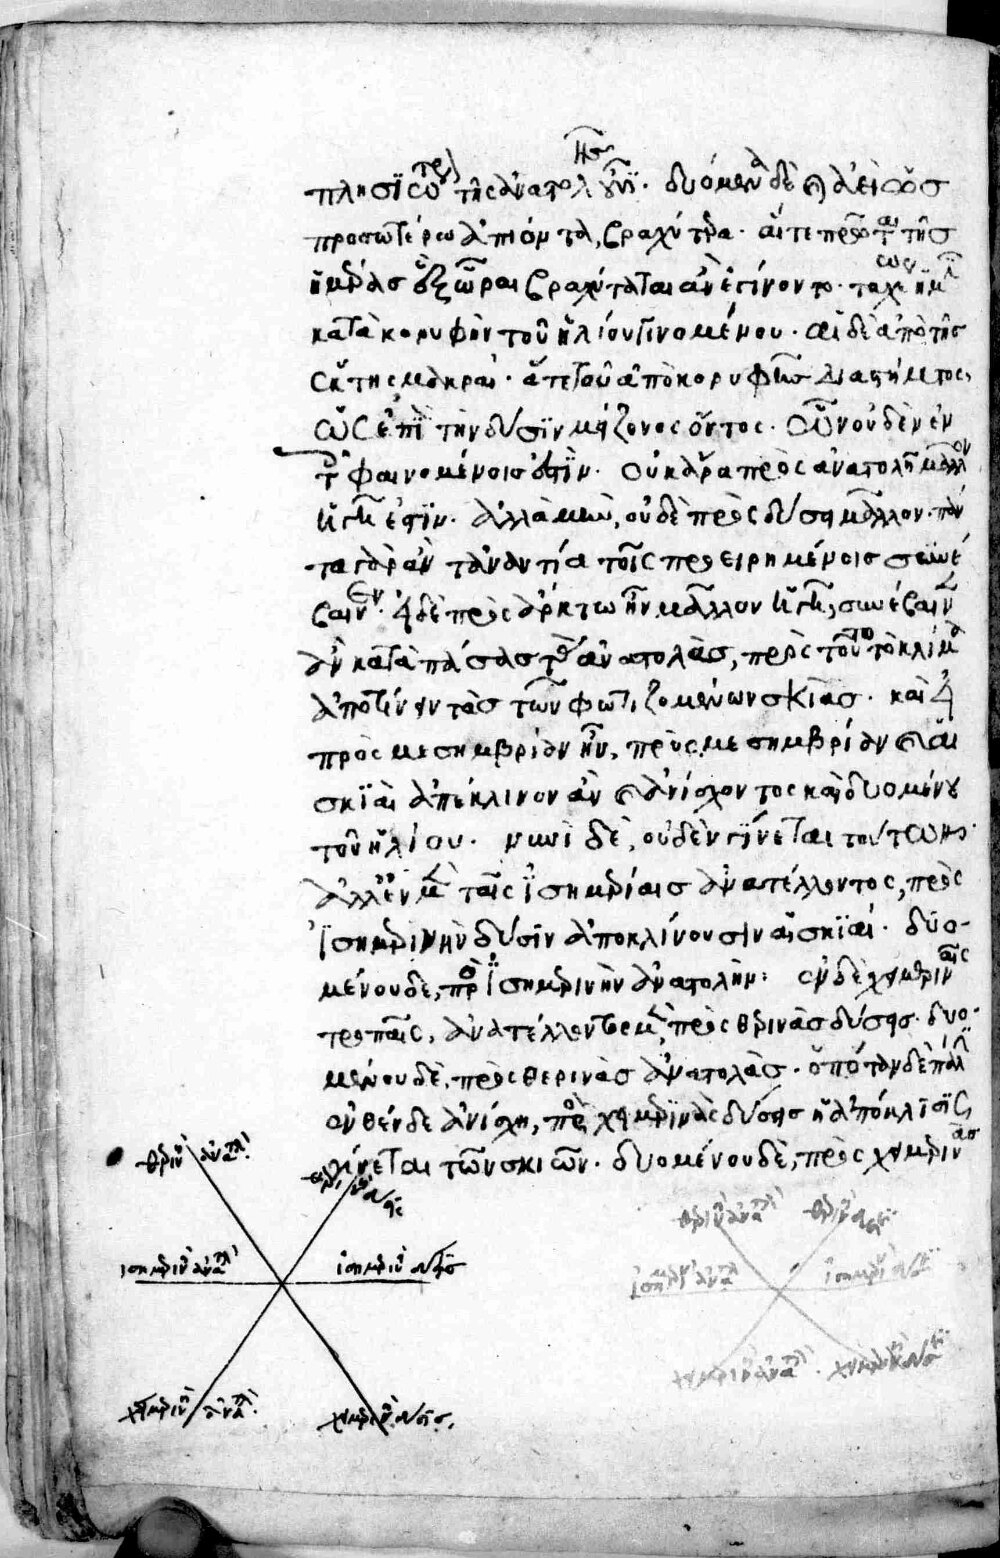 πλησιαίτερον τῆς ἀνατολῆς οὔσῃ. δυόμενα δὲ καὶ ἀεὶ ὡς
προσωτέρω ἀπιόντα, βραχύτερα. αἵ τε πρὸ τῆς
ἡμέρας ἓξ ὧραι βραχύταται ἂν ἐγίνοντο. ταχέως ἡμῖν
κατὰ κορυφὴν τοῦ ἡλίου γινομένου. αἱ δὲ ἀπὸ τῆς
ἕκτης μακραί. ἅτε τοῦ ἀπὸ κορυφῆς διαστήματος,
ὡς ἐπὶ τὴν δύσιν μείζονος ὄντος. ὧν οὐδὲν ἐν
τοῖς φαινομένοις ἐστίν. οὐκ ἄρα πρὸς ἀνατολῇ μᾶλλον
ἡ γῆ ἐστιν. ἀλλὰ μὴν, οὐδὲ πρὸς δύσει μᾶλλον. πάν
τα γὰρ ἂν τἀναντία τοῖς προειρημένοις συνέ
βαινεν. εἰ δὲ πρὸς ἄρκτῳ ἦν μᾶλλον ἡ γῆ, συνέβαινεν
ἂν κατὰ πάσας τὰς ἀνατολὰς, πρὸς τοῦτο τὸ κλίμα
ἀποτείνειν τὰς τῶν φωτιζομένων σκιάς. καὶ εἰ
πρὸς μεσημβρίαν ἦν, πρὸς μεσημβρίαν καὶ αἱ
σκιαὶ ἀπέκλινον ἂν καὶ ἀνίσχοντος καὶ δυομένου
τοῦ ἡλίου. νυνὶ δὲ, οὐδὲν γίνεται τούτων.
ἀλλ' ἐν μὲν ταῖς ἰσημερίαις ἀνατέλλοντος, πρὸς
ἰσημερινὴν δύσιν ἀποκλίνουσιν αἱ σκιαί. δυο-
μένου δὲ, πρὸς ἰσημερινὴν ἀνατολήν: ἐν δὲ χειμεριναῖς
τροπαῖς, ἀνατέλλοντος μὲν, πρὸς θερινὰς δύσεις. δυο-
μένου δὲ, πρὸς θερινὰς ἀνατολάς. ὁπόταν δὲ πάλιν
ἐνθένδε ἀνίσχῃ, πρὸς χειμερινὰς δύσεις ἡ ἀπόκλισις
γίνεται τῶν σκιῶν. δυομένου δὲ, πρὸς χειμερινὰς
θερινὴ ἀνατολή
θερινὴ δύσις
ἰσημερινὴ ἀνατολή
ἰσημερινὴ δύσις
χειμερινὴ ἀνατολή
χειμερινὴ δύσις
θερινὴ ἀνατολή
θερινὴ δύσις
ἰσημερινὴ ἀνατολή
ἰσημερινὴ δύσις
χειμερινὴ ἀνατολή
χειμερινὴ δύσις